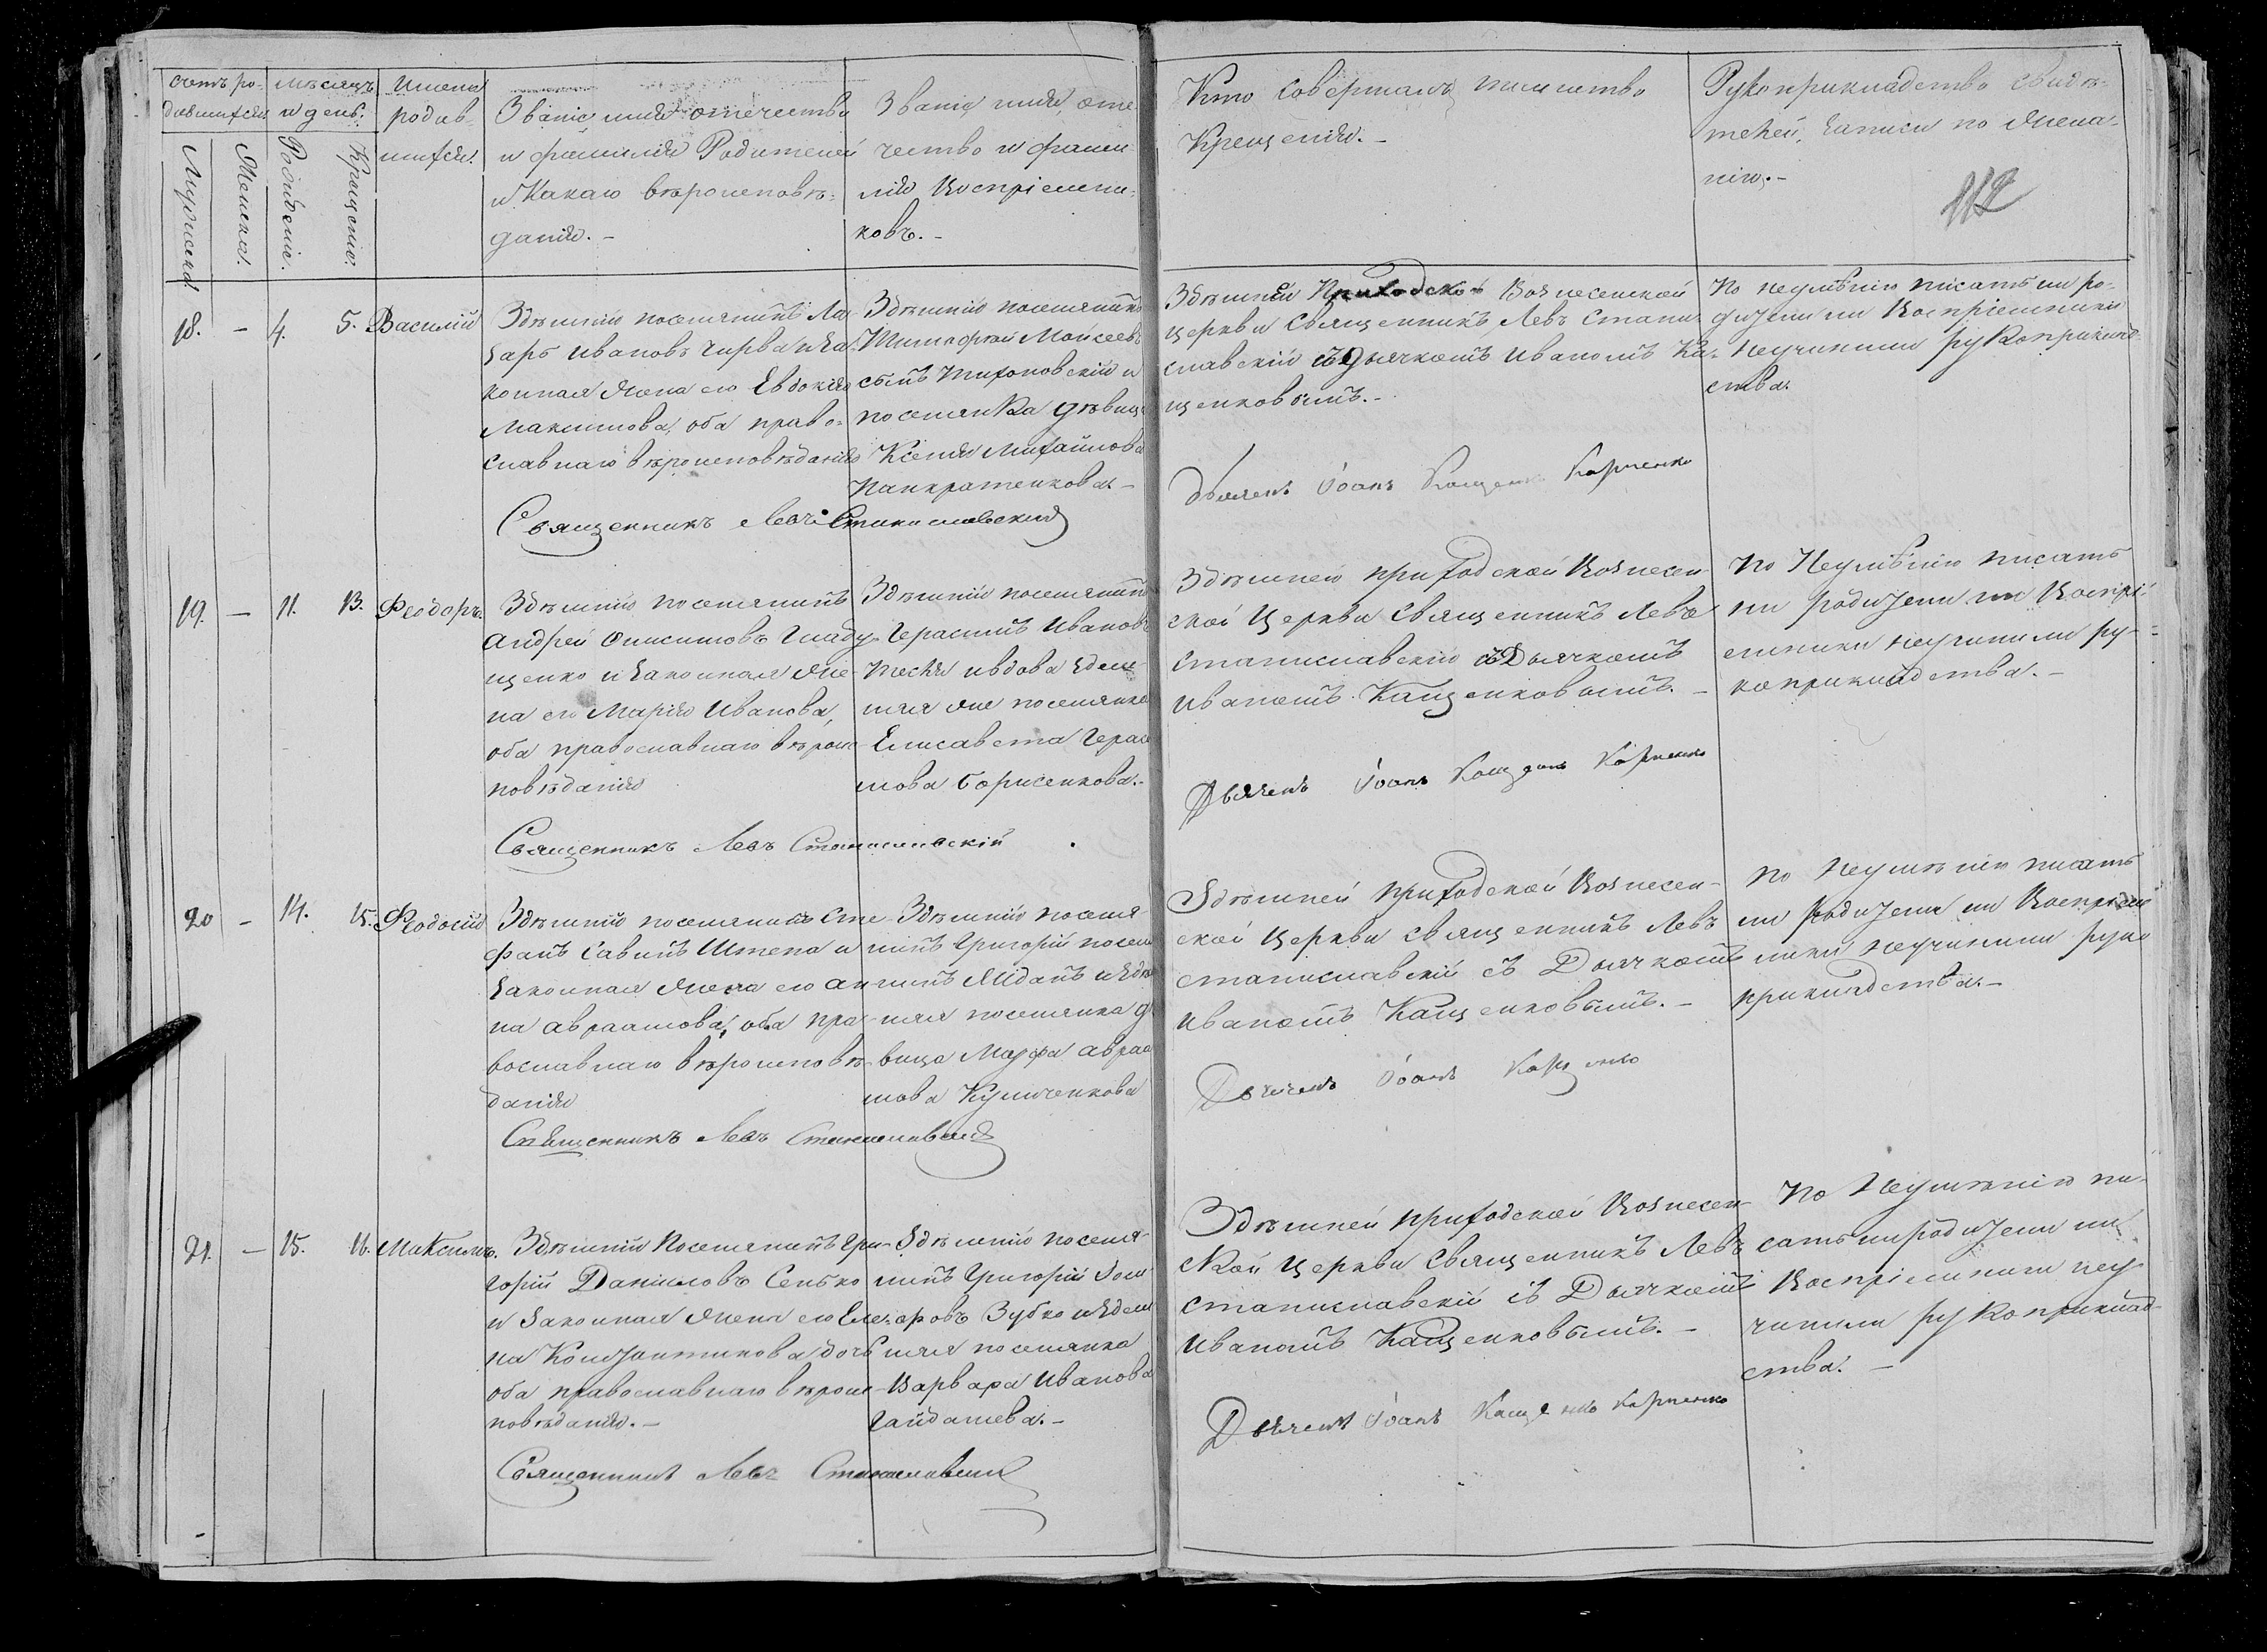 счетъ ро-
дившихся
мѣсяцъ
и день.
Имена
родив-
шихся.
Званіе имя отечество
и фамилія Родителей
и Какаго вѣроисповѣ-
данія. -
Званіе, имя, оте-
чество и фами-
лія Воспріемни-
ковъ. -
Кто Совершалъ таинство
Крещенія. -
Рукоприкладство свидѣ-
телей, записи по Жела-
нію. -
112
Мужеска.
Женска.
Рожденіе.
Крещеніе.
18. - 4. 5. Василій
Здѣшній поселянинъ Ла-
зарь Ивановъ Чирва и За-
конная Жена его Евдокія
Максимова, оба право-
славнаго вѣроисповѣданія
Здѣшній поселянинъ
Тимофей Моисеевъ
сынъ Тихоновскій и
поселянка дѣвица
Ксенія Михайлова
Панкратенкова. -
Священникъ Левъ Станиславскій
Здѣшней Приходской Вознесенской
церкви Священникъ Левъ Стани-
славскій съ Дьячкомъ Иваномъ Ка-
щенковымъ. -
Дьячекъ Іоанъ Кащенко Карпенко
По неумѣнію писать ни ро-
дители ни Воспріемники
Неучинили рукоприклад-
ства.
19. - 11. 13. Феодоръ.
Здѣшній поселянинъ
Андрей Онисимовъ Гладу-
щенко и Законная Же-
на его Марія Иванова,
оба православнаго вѣроис-
повѣданія
Здѣшній поселянинъ
Герасимъ Ивановъ
и вдова здеш-
няя же поселянка
Елисавета Гераси-
мова Борисенкова. -
Священникъ Левъ Станиславскій
Здѣшней приходской Вознесен-
ской Церкви Священникъ Левъ
Станиславскій съ Дьячкомъ
Иваномъ Кащенковымъ. -
Дьячекъ Іоанъ Кащенко Карпенко
По Неумѣнію писать
ни родители ни Воспрі-
емники неучинили ру-
коприкладства. -
20 - 14. 15. Феодосій
Здѣшній поселянинъ Сте-
фанъ Савинъ Штепа и
Законная Жена его Ан-
на Авраамова, оба пра-
вославнаго вѣроисповѣ-
данія
Здѣшній поселя-
нинъ Григорій
Жданъ и Здѣш-
няя поселянка дѣ-
вица Марфа Авраа-
мова Кумченкова
Священникъ Левъ Станиславскій
Здѣшней приходской Вознесен-
ской Церкви Священникъ Левъ
Станиславскій съ Дьячкомъ
Иваномъ Кащенковымъ. -
Дьячекъ Іоанъ
По Неумѣнію писать
ни родители ни Воспріем-
ники неучинили руко-
прикладства. -
21. - 15. 16. Максимъ.
Здѣшній Поселянинъ Гри-
горій Даниловъ Сенько
и Законная Жена его Еле-
на Константинова дочь
оба православнаго вѣроис-
повѣданія. -
Здѣшній поселя-
нинъ Григорій
Зубко и Здеш-
няя поселянка
Варвара Иванова
Гайдашева. -
Священникъ Левъ Станиславскій
Здѣшней приходской Вознесен-
ской Церкви Священникъ Левъ
Станиславскій съ Дьячкомъ
Иваномъ Кащенковымъ. -
Дьячекъ Іоанъ Кащенко Карпенко
По Неумѣнію пи-
сать ни родители ни
Воспріемники неу-
чинили рукоприклад-
ства. -